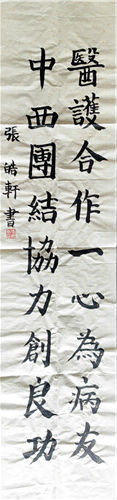 醫護合作一心為病友
中西團結協力創良功
張皓軒書